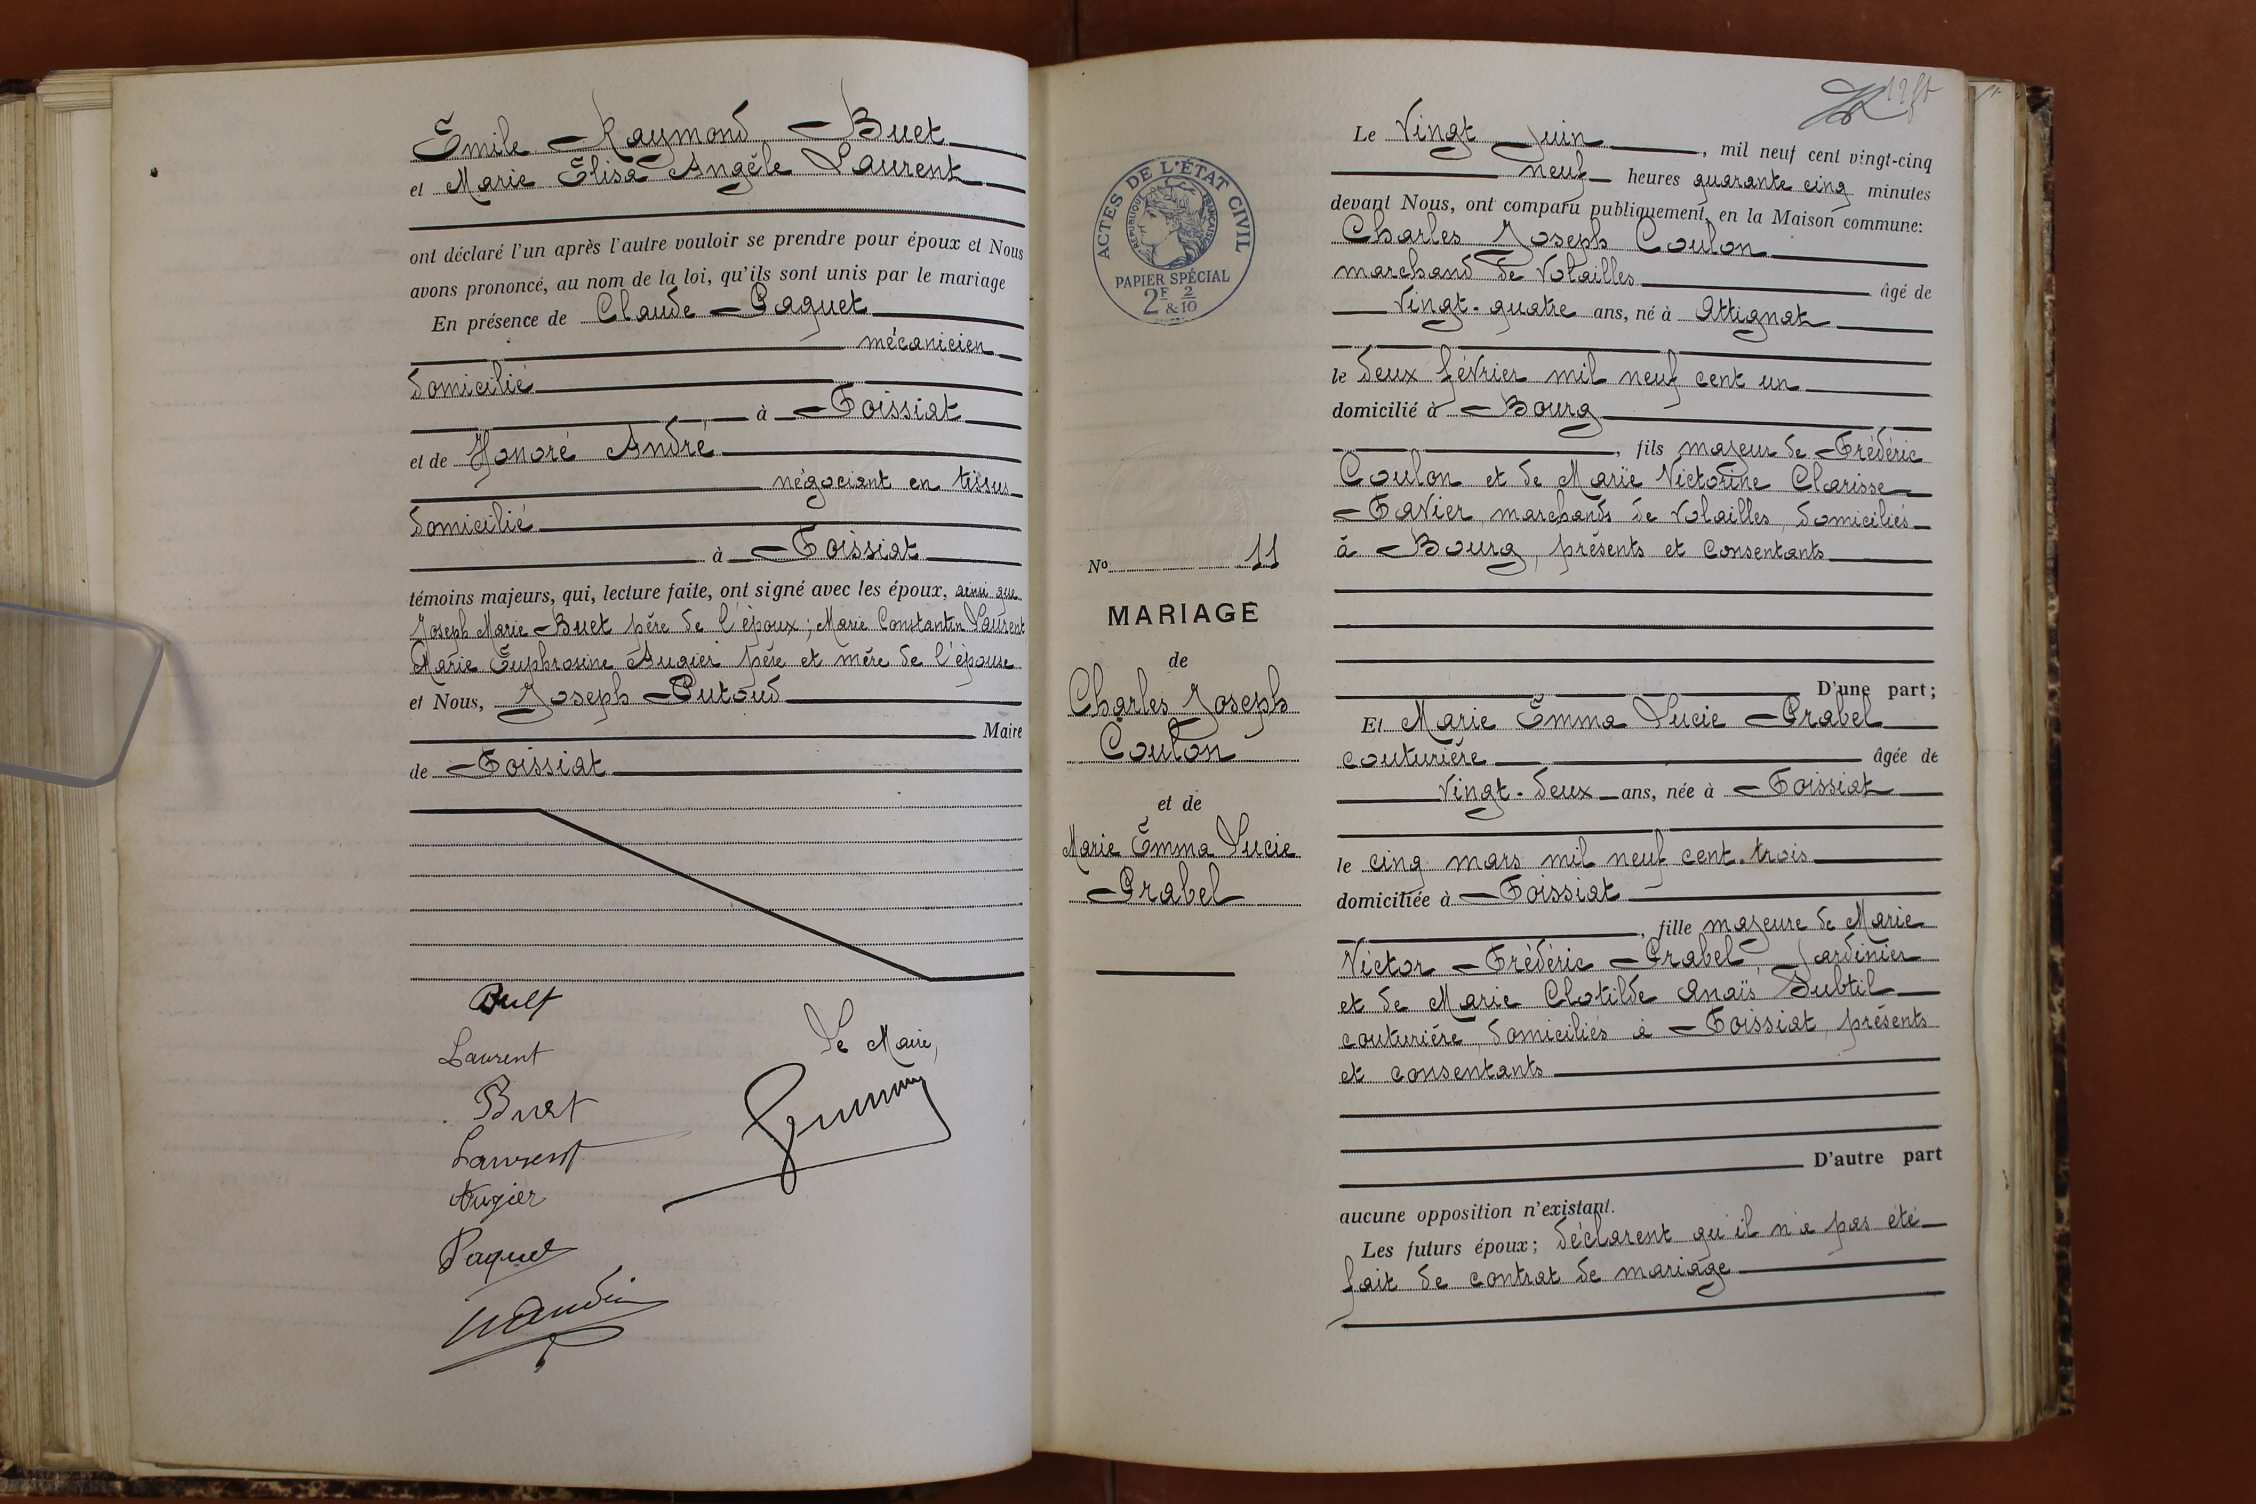 Emile Raymond Buet
et Marie Elisa Angèle Laurent
ont déclaré l'un après l'autre vouloir se prendre pour époux et Nous
avons prononcé, au nom de la loi, qu'ils sont unis par le mariage
En présence de Claude Paquet
mécanicien
domicilié
à Foissiat
et de Honoré André
négociant en tissus
domicilié
à Foissiat
témoins majeurs, qui, lecture faite, ont signé avec les époux, ainsi que
Joseph Marie Buet père de l'époux; Marie Constantin Laurent
Marie Euphrosine Augier père et mère de l'épouse
et Nous, Joseph Putoud
Maire
de Foissiat
Buet
Laurent
Le Maire,
Buet
Laurent
Augier
Paquet
Le Vingt Juin, mil neuf cent vingt-cinq
neuf heures quarante cinq minutes
devant Nous, ont comparu publiquement, en la Maison commune:
Charles Joseph Coulon
marchand de Volailles âgé de
Vingt-quatre ans, né à Attignat
le deux février mil neuf cent un
domicilié à Bourg
, fils majeur de Frédéric
Coulon et de Marie Victorine Clarisse
Favier, marchands de Volailles, domiciliés
à Bourg, présents et consentants
D'une part;
Et Marie Emma Lucie Prabel
couturière âgée de
Vingt-deux ans, née à Foissiat
le cinq mars mil neuf cent trois
domiciliée à Foissiat
, fille majeure de Marie
Victor Frédéric Prabel, Jardinier
et de Marie Clotilde Anaïs Subtil
couturière, domiciliés à Foissiat, présents
et consentants
D'autre part
aucune opposition n'existant.
Les futurs époux; déclarent qu'il n'a pas été
fait de contrat de mariage
ACTES DE L'ÉTAT CIVIL
RÉPUBLIQUE FRANÇAISE
PAPIER SPÉCIAL
2F & 2/10
No 11
MARIAGE
de
Charles Joseph
Coulon
et de
Marie Emma Lucie
Prabel